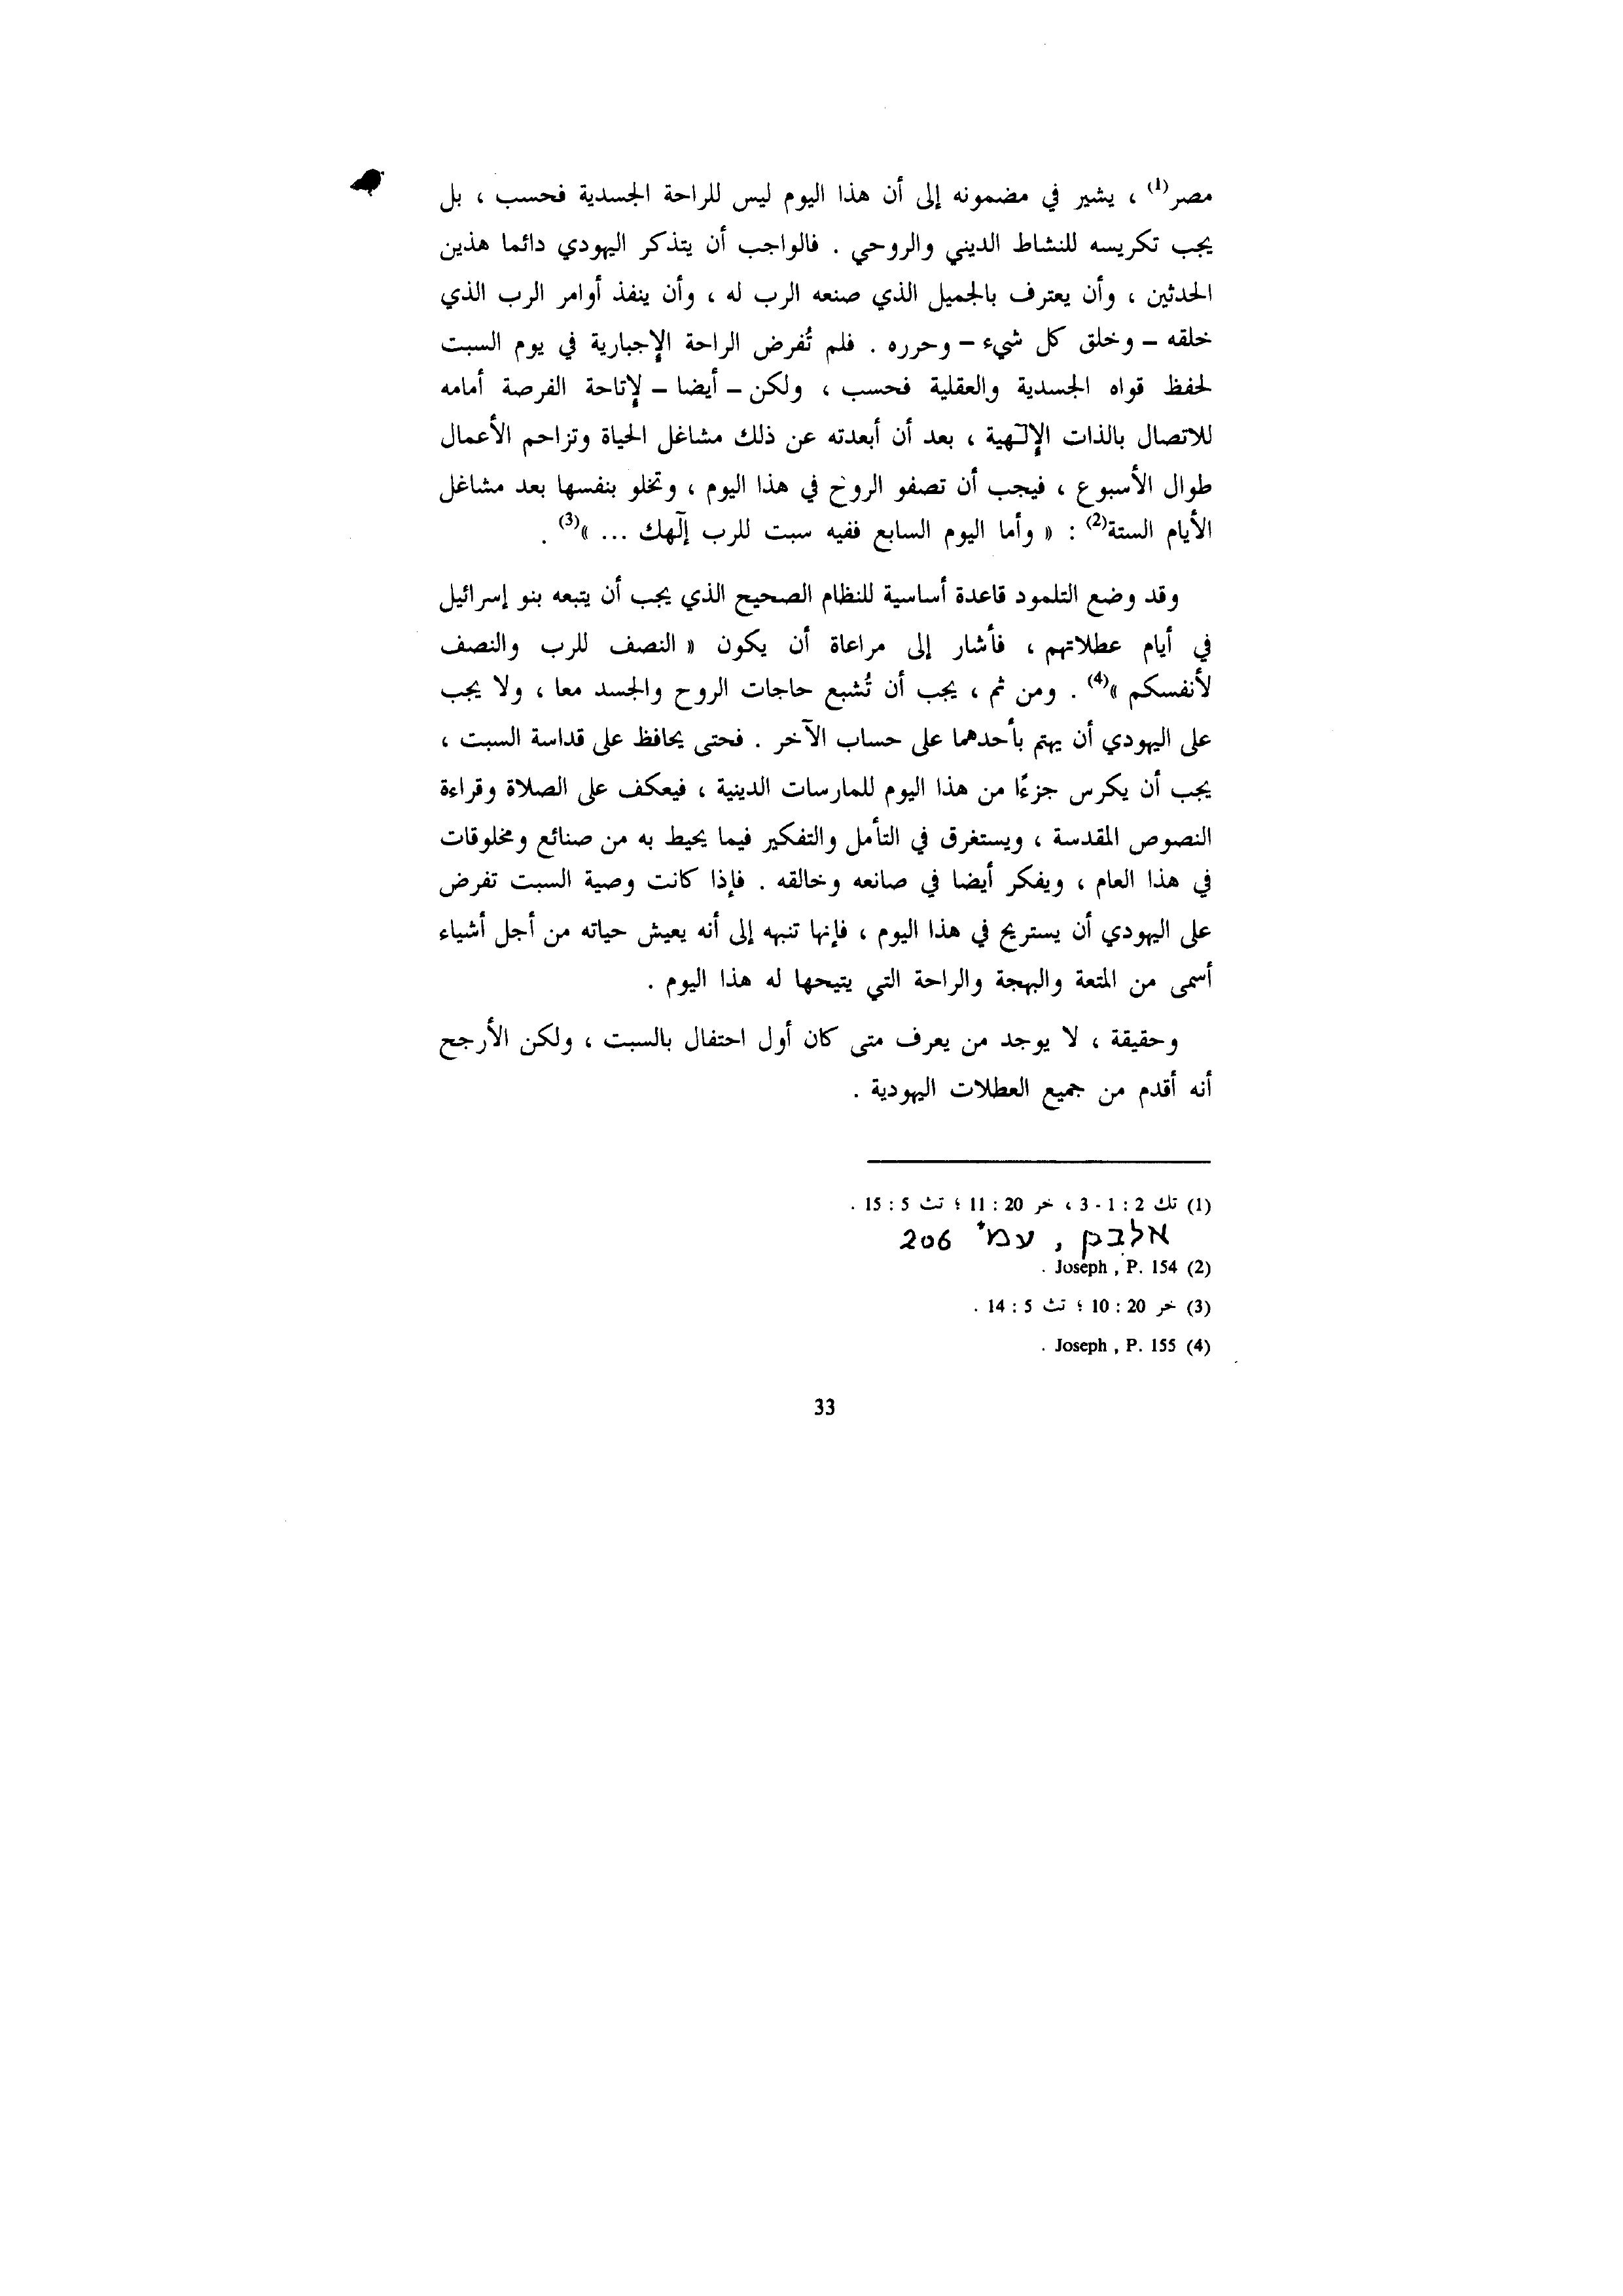 مصر(1) ، يشير في مضمونه إلى أن هذا اليوم ليس للراحة الجسدية فحسب ، بل
يجب تكريسه للنشاط الديني والروحي . فالواجب أن يتذكر اليهودي دائما هذين
الحدثين ، وأن يعترف بالجميل الذي صنعه الرب له ، وأن ينفذ أوامر الرب الذي
خلقه – وخلق كل شيء – وحرره . فلم تُفرض الراحة الإجبارية في يوم السبت
لحفظ قواه الجسدية والعقلية فحسب ، ولكن – أيضا – لإتاحة الفرصة أمامه
للاتصال بالذات الإلٰهية ، بعد أن أبعدته عن ذلك مشاغل الحياة وتزاحم الأعمال
طوال الأسبوع ، فيجب أن تصفو الروح في هذا اليوم ، وتخلو بنفسها بعد مشاغل
الأيام الستة(2) : « وأما اليوم السابع ففيه سبت للرب إلٰهك ... »(3) .
وقد وضع التلمود قاعدة أساسية للنظام الصحيح الذي يجب أن يتبعه بنو إسرائيل
في أيام عطلاتهم ، فأشار إلى مراعاة أن يكون « النصف للرب والنصف
لأنفسكم »(4) . ومن ثم ، يجب أن تُشبع حاجات الروح والجسد معا ، ولا يجب
على اليهودي أن يهتم بأحدهما على حساب الآخر . فحتى يحافظ على قداسة السبت ،
يجب أن يكرس جزءًا من هذا اليوم للمارسات الدينية ، فيعكف على الصلاة وقراءة
النصوص المقدسة ، ويستغرق في التأمل والتفكير فيما يحيط به من صنائع ومخلوقات
في هذا العام ، ويفكر أيضا في صانعه وخالقه . فإذا كانت وصية السبت تفرض
على اليهودي أن يستريح في هذا اليوم ، فإنها تنبهه إلى أنه يعيش حياته من أجل أشياء
أسمى من المتعة والبهجة والراحة التي يتيحها له هذا اليوم .
وحقيقة ، لا يوجد من يعرف متى كان أول احتفال بالسبت ، ولكن الأرجح
أنه أقدم من جميع العطلات اليهودية .
(1) تك 2 : 1 - 3 ، خر 20 : 11 ؛ تث 5 : 15 .
אלבק , עמ' 206
(2) Joseph , P. 154 .
(3) خر 20 : 10 ؛ تث 5 : 14 .
(4) Joseph , P. 155 .
33